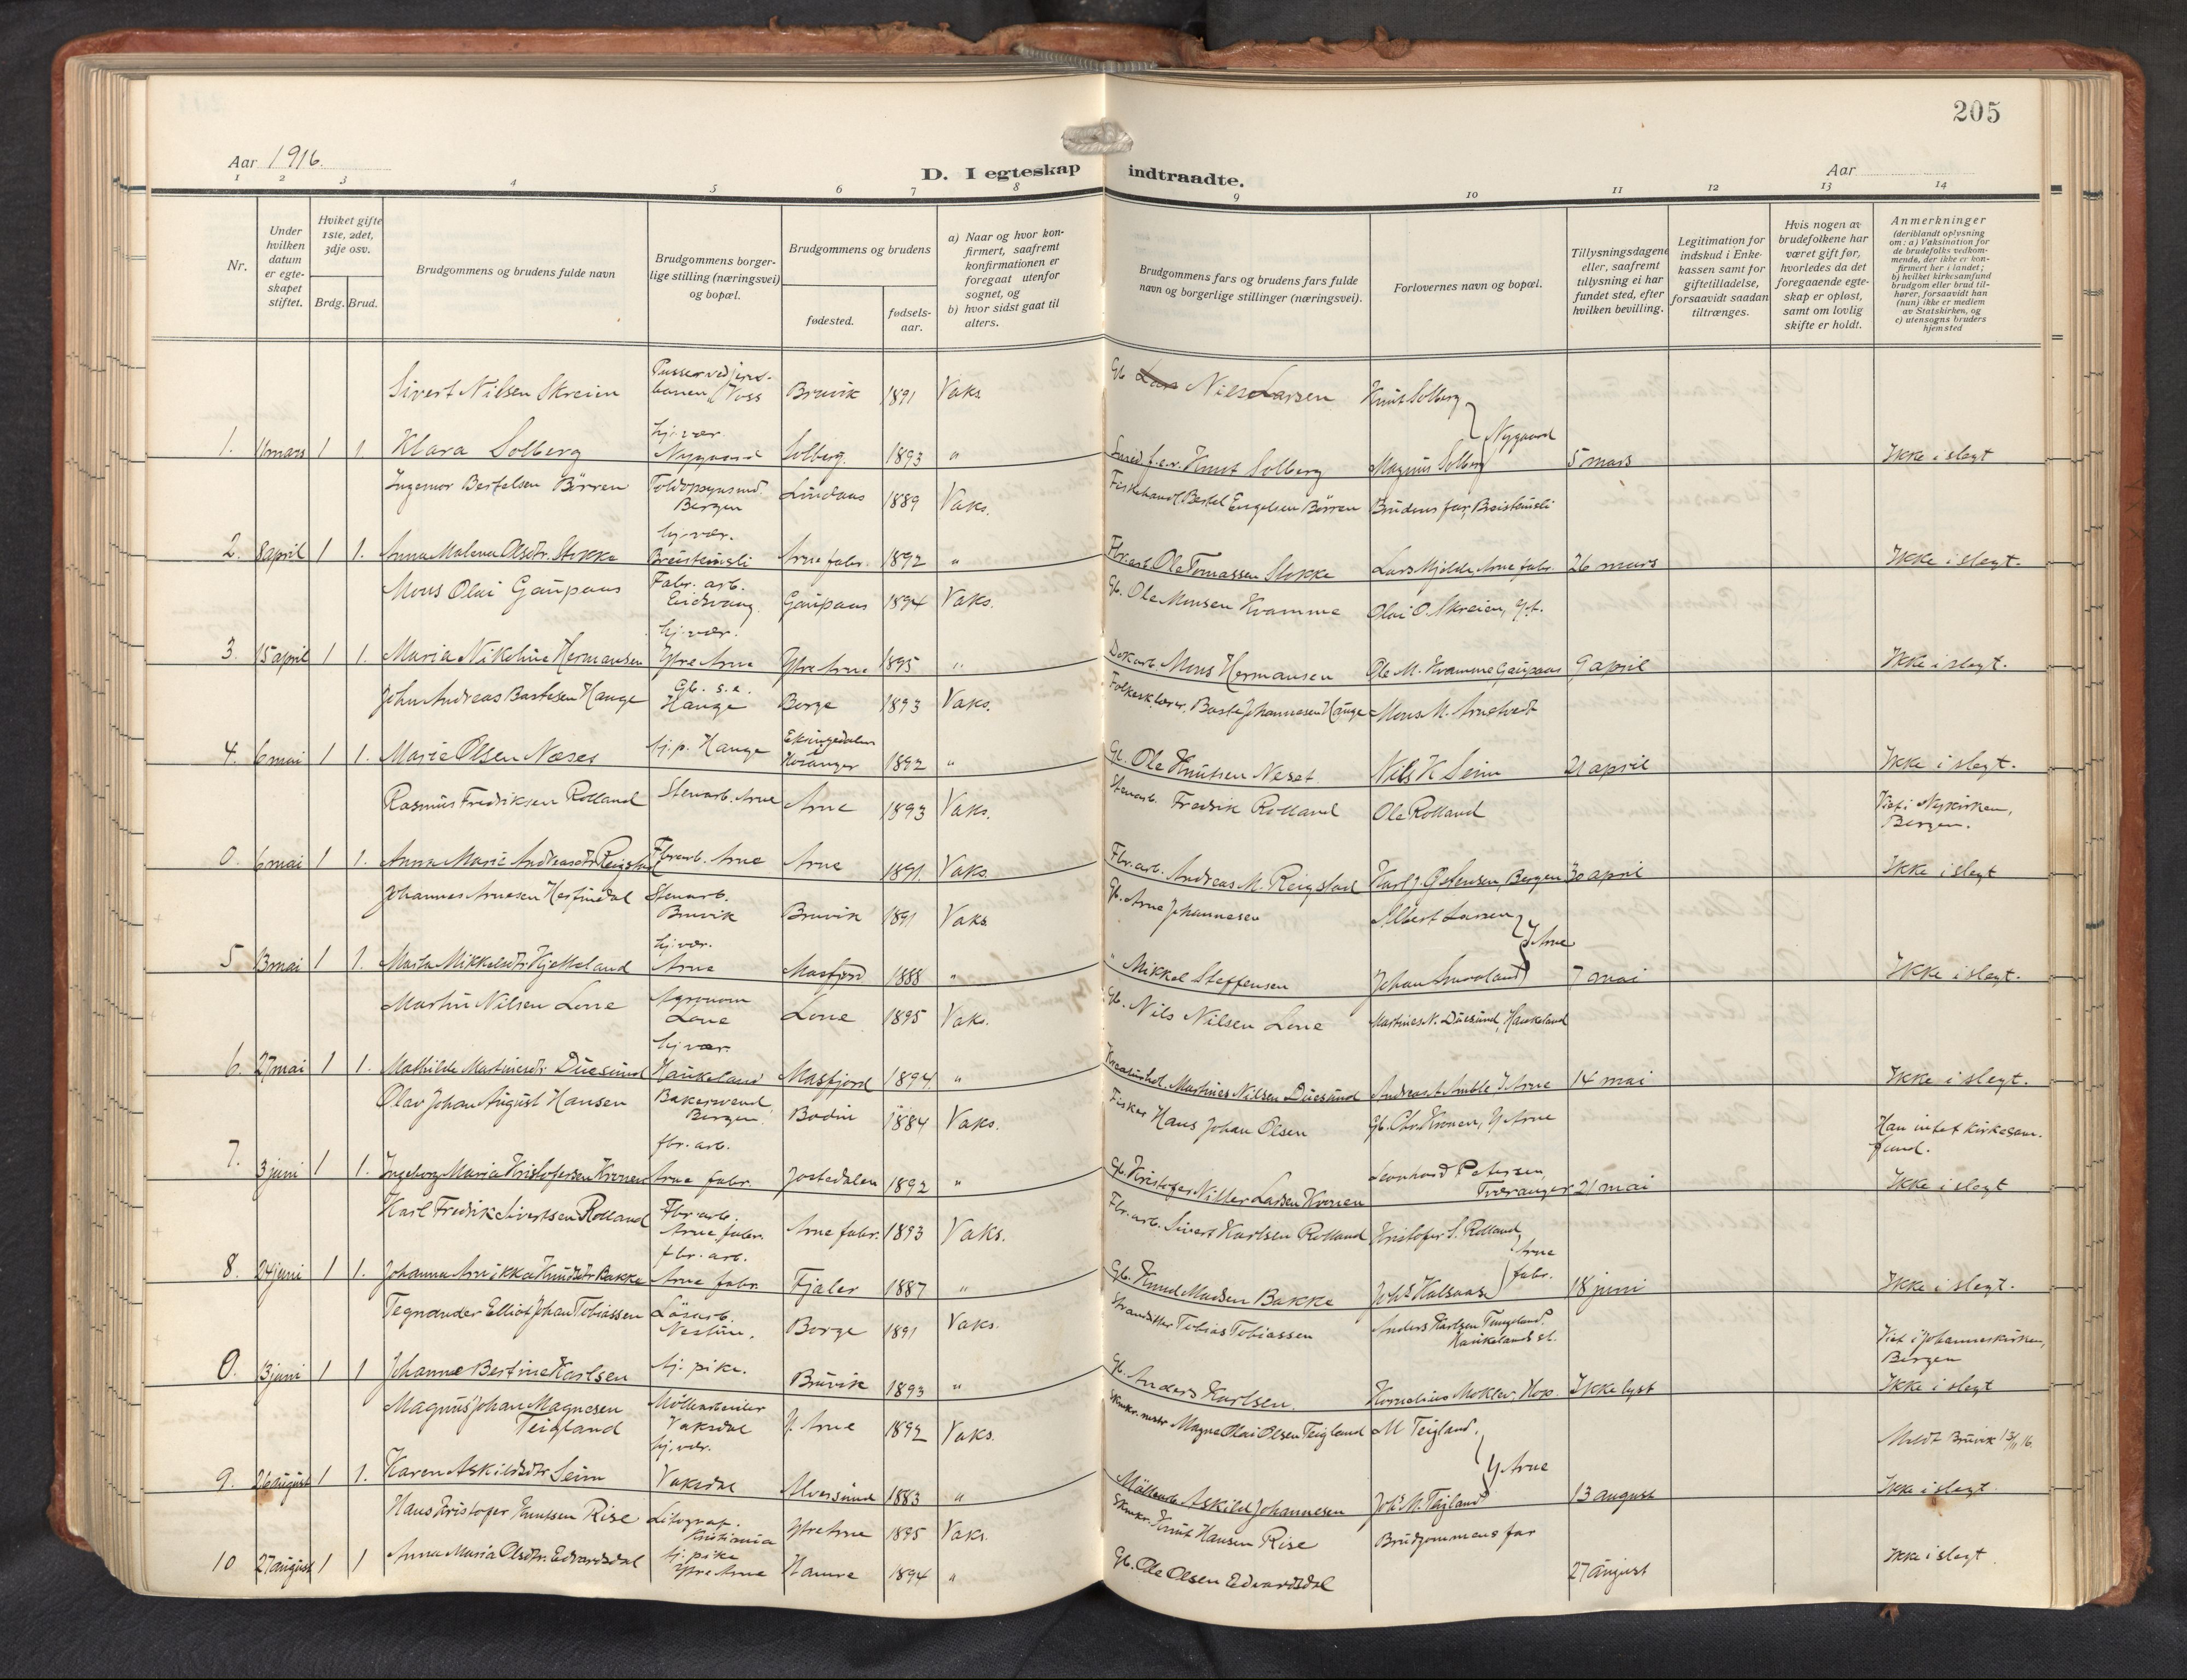 205
Aar 1916.
D. I egteskap indtraadte.
Aar
1 2 3 4 5 6 7 8 9 10 11 12 13 14
Nr.
Under hvilken datum er egteskapet stiftet.
Hviket gifte 1ste, 2det, 3dje osv.
Brdg. Brud.
Brudgommens og brudens fulde navn
Brudgommens borgerlige stilling (næringsvei) og bopæl.
Brudgommens og brudens
fødested.
fødselsaar.
a) Naar og hvor konfirmert, saafremt konfirmationen er foregaat utenfor sognet, og
b) hvor sidst gaat til alters.
Brudgommens fars og brudens fars fulde navn og borgerlige stillinger (næringsvei).
Forlovernes navn og bopæl.
Tillysningsdagene eller, saafremt tillysning ei har fundet sted, efter hvilken bevilling.
Legitimation for indskud i Enkekassen samt for giftetilladelse, forsaavidt saadan tiltrænges.
Hvis nogen av brudefolkene har været gift før, hvorledes da det foregaaende egteskap er opløst, samt om lovlig skifte er holdt.
Anmerkninger (deriblandt oplysning om: a) Vaksination for de brudefolks vedkommende, der ikke er konfirmert her i landet; b) hvilket kirkesamfund brudgom eller brud tilhører, forsaavidt han (nun) ikke er medlem av Statskirken, og c) utensogns bruders hjemsted
Sivert Nilsen Skreien Pusser ved jernbanen, Voss Bruvik 1891 Vaks. Gb. Nils Larsen Knut Solberg
1. 11 mars 1 1. Klara Solberg hj. vær. Nygaard Solberg. 1893 " Smed f.e.v. Knut Solberg Magnus Solberg Nygaard 5 mars Ikke i slegt
Ingemor Bertelsen Börren Toldopsynsmd. Bergen Lindaas 1889 Vaks. Fiskehandl. Bertel Engelsen Börren Brudens far, Breisteinsli
2. 8 april 1 1. Anna Malena Olsdtr. Stokke hj. vær. Breisteinsli Arne fabr. 1892 " Fbr.arb. Ole Tomassen Stokke Lars Mjelde, Arne fabr. 26 mars Ikke i slegt.
Mons Olai Gaupaas Fabr. arb. Eidsvaag Gaupaas 1894 Vaks. Gb. Ole Monsen Kvamme Olai O. Skreien, Gp.
3. 15 april 1 1. Maria Nikoline Hermansen hj. vær. Ytre Arne Ytre Arne 1895 " Dokarb. Mons Hermansen Ole M. Kvamme Gaupaas 9 april Ikke i slegt.
John Andreas Bastesen Hauge Gb. s.e. Hauge Borge 1893 Vaks. Folkesk. lærer, Baste Johannesen Hauge Mons M. Arnetvedt
4. 6 mai 1 1. Marie Olsen Næses hj. p. Hauge Eksingedalen Hosanger 1892 " Gb. Ole Knutsen Neset. Nils K Seim 21 april Ikke i slegt.
Rasmus Fredriksen Rolland Stenarb. Arne Arne 1893 Vaks. Stenarb. Fredrik Rolland Ole Rolland Viet i Nykirken, Bergen.
0. 6 mai 1 1. Anna Marie Andreasdtr. Reigstad Fbrarb. Arne Arne 1891. Vaks. Fbr. arb. Andreas M. Reigstad Karl J. Ostensen, Bergen 30 april Ikke i slegt
Johannes Arnesen Herfindal Stenarb. Bruvik Bruvik 1891 Vaks. Gb. Arne Johannesen Albert Larsen
5 13 mai 1 1. Marta Mikkelsdtr. Kjetteland hj. vær. Arne Masfjord 1888 " " Mikkel Steffensen Johan Smaaland Y Arne 7 mai Ikke i slegt.
Martin Nilsen Lone Agronom Lone Lone 1895 Vak. Gb. Nils Nilsen Lone Martines N. Duesund, Haukeland
6. 27 mai 1 1. Mathilde Martinesdtr. Duesund hj. vær. Haukeland Masfjord 1894 " Kreaturhdl. Martines Nilsen Duesund Andreas A Amble, Y. Arne 14 mai Ikke i slegt.
Olav Johan August Hansen Bakersvend Bergen Bodin 1884 Vaks. Fisker Hans Johan Olsen Gb. Chr. Kronen, Y Arne Han intet kirkesamfund.
7. 3 juni 1 1. Ingeborg Maria Kristofersen Kronen fbr. arb. Arne fabr. Jostedalen 1892 " Gb. Kristofer Niller Larsen Kronen Leonhard Petersen, Tveranger 21 mai Ikke i slegt
Karl Fredrik Sivertsen Rolland Fbr arb. Arne fabr. Arne fabr. 1893 Vaks. Fbr. arb. Sivert Karlsen Rolland Kristofer S. Rolland,
8. 24 juni 1 1. Johanna Annikka Knudsdtr Bakke fbr. arb. Arne fabr. Fjaler 1887 " Gb. Knud Madsen Bakke Johs Kalsaas Arne fabr. 18 juni Ikke i slegt.
Tegnander Elliot Johan Tobiassen Lösarb. Nestun. Borge 1891 Vaks. Strandsitter Tobias Tobiassen Anders Karlsen Tungeland, Haukeland st. Viet i Johanneskirken, Bergen
0. 13 juni 1 1 Johanne Bertine Karlsen hj. pike. Bruvik 1893 " Gb. Anders Karlsen. Kornelius Moklev, Hop. Ikke lyst Ikke i slegt
Magnus Johan Magnesen Teigland Möllearbeider Vaksdal Y. Arne 1892 Vaks. Skmkr. mstr Magne Olai Olsen Teigland M Teigland. Meldt Bruvik 13/11 16.
9. 26 august 1 1. Karen Askildsdtr Seim hj. vær. Vaksdal Alversund 1883 " Möllearb. Askild Johannesen Johs M. Teigland Y Arne 13 august Ikke i slegt.
Hans Kristofer Knutsen Rise Litograf. Kristiania Ytre Arne 1895 Vaks. Skmkr. Knut Hansen Rise Brudgommens far
10 27 august 1 1 Anna Maria Olsdtr. Edvardsdal hj. pike Ytre Arne Hamre 1894 " Gb. Ole Olsen Edvardsdal 27 august Ikke i slegt.